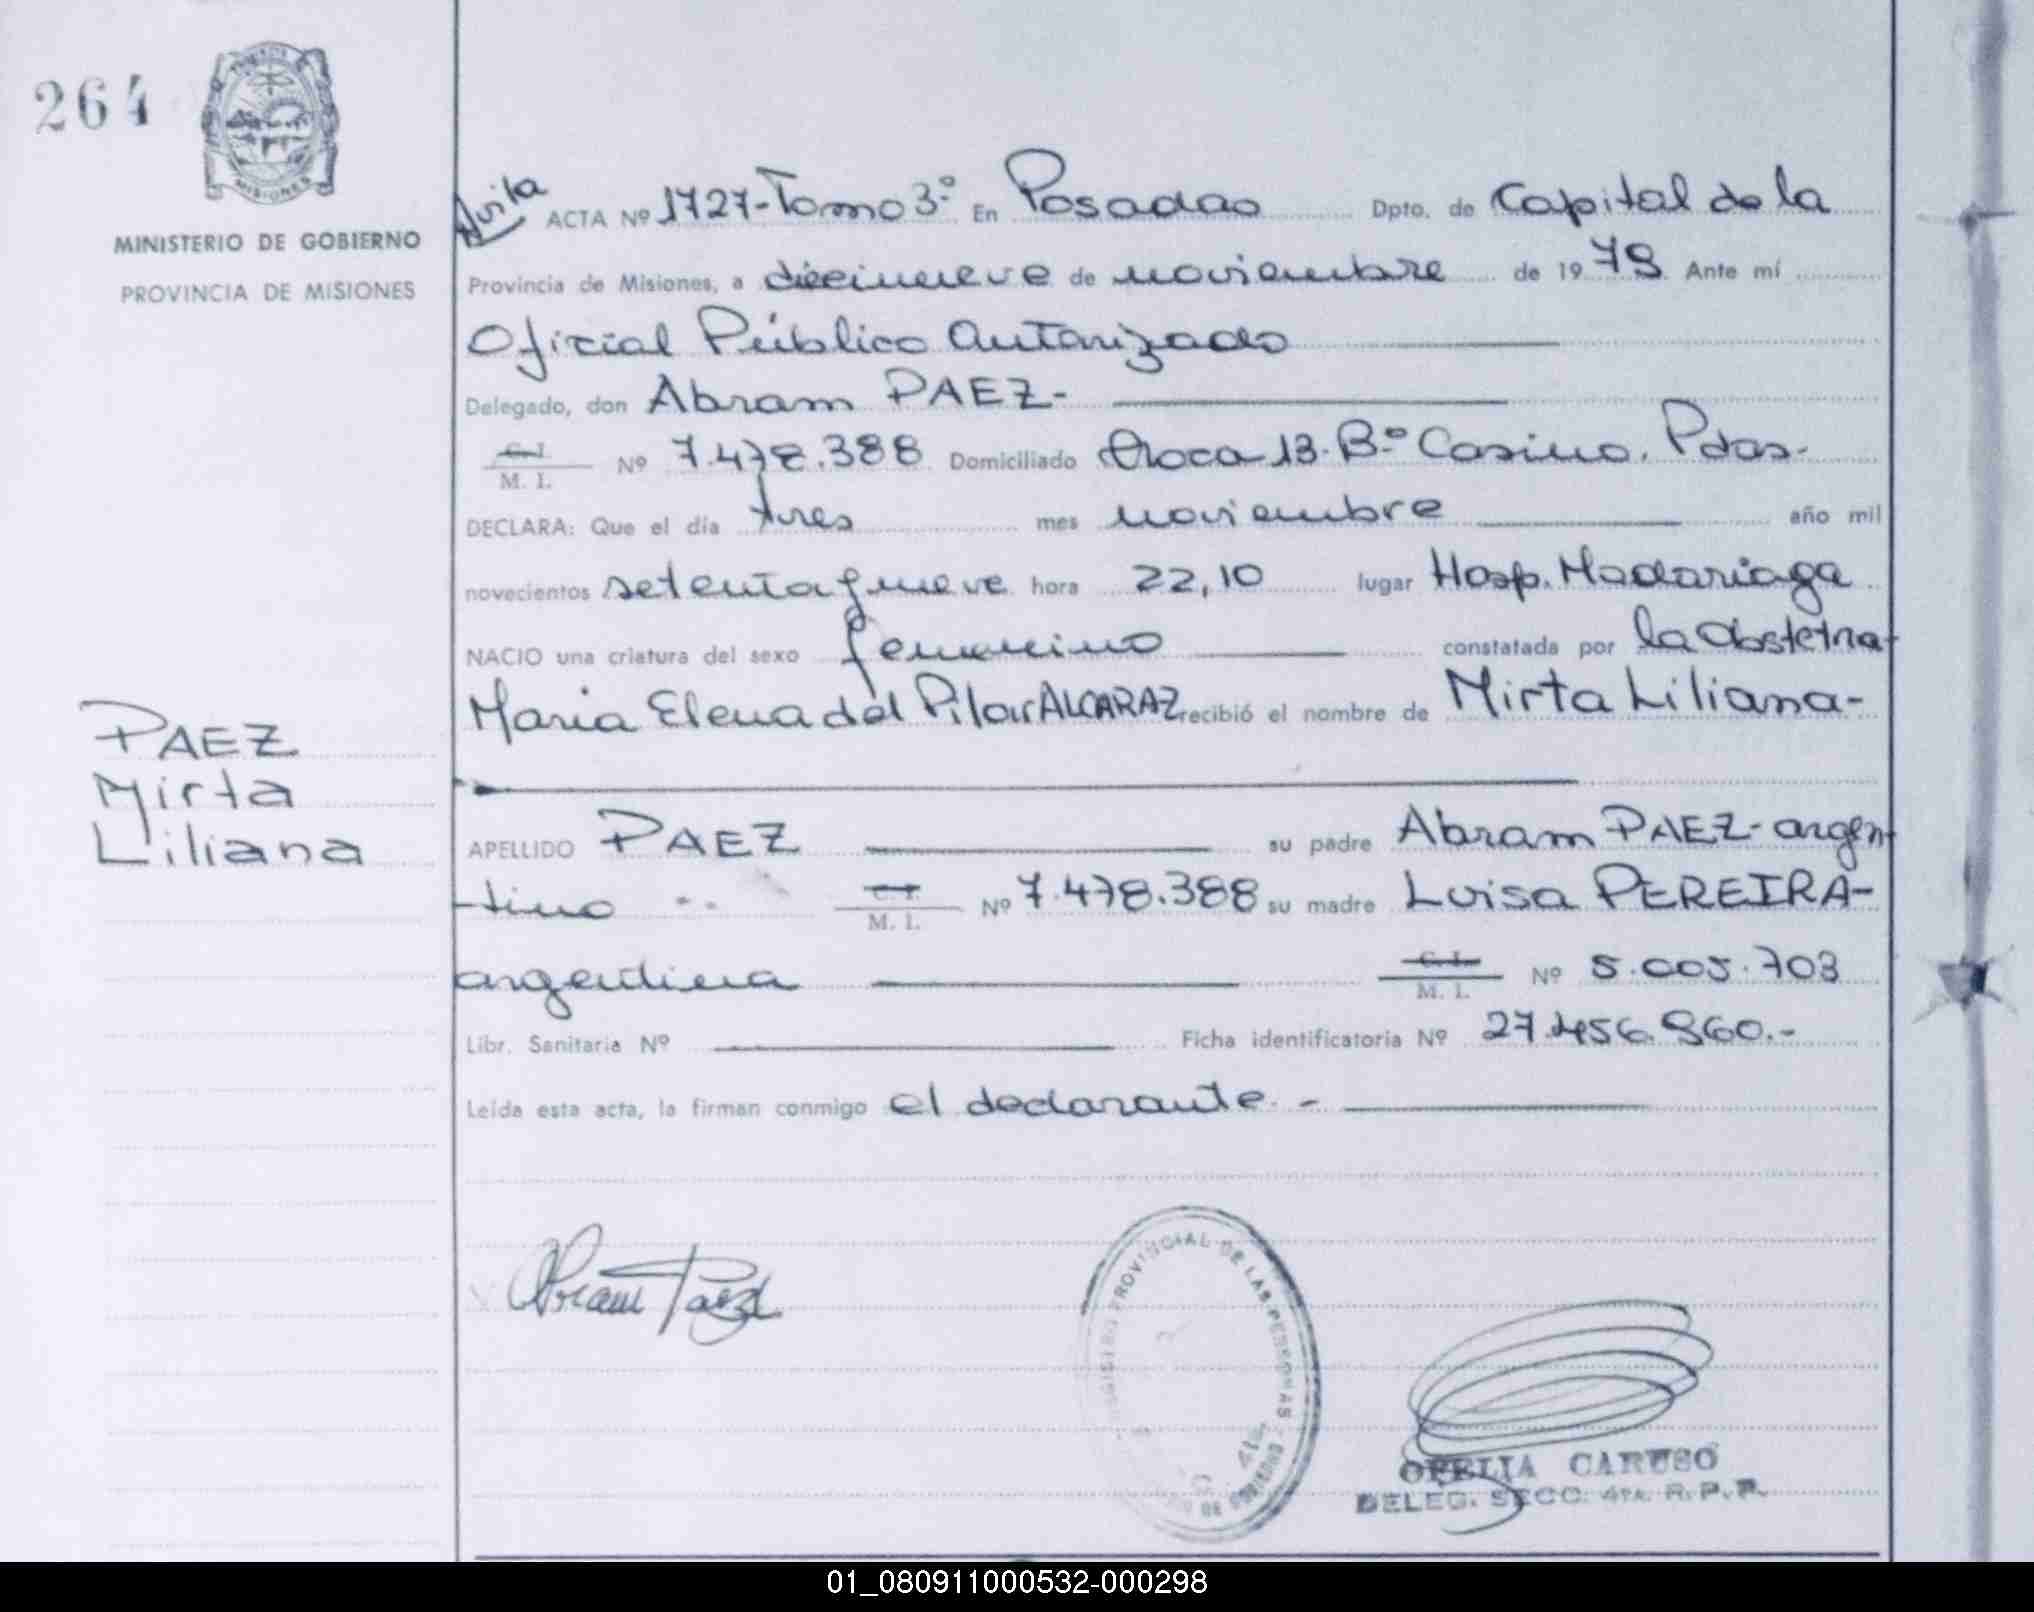 264
MISIONES
MINISTERIO DE GOBIERNO
PROVINCIA DE MISIONES
ACTA Nº 1727-Tomo 3º En Posadas Dpto. de Capital de la
Provincia de Misiones, a diecinueve de noviembre de 1979 Ante mí
Oficial Público Autorizado
Delegado, don Abram PAEZ-
C. I.
M. I. Nº 7.478.388 Domiciliado Chaca 13. Bº Casino. Pdas.
DECLARA: Que el día tres mes noviembre año mil
novecientos setenta y nueve hora 22,10 lugar Hosp. Madariaga
NACIO una criatura del sexo femenino constatada por la obstetra
Maria Elena del Pilar ALCARAZ recibió el nombre de Mirta Liliana-
PAEZ
Mirta
Liliana
APELLIDO PAEZ su padre Abram PAEZ- argen
-tino C. I.
M. I. Nº 7.478.388 su madre Luisa PEREIRA-
argentina C. I.
M. I. Nº 5.005.703
Libr. Sanitaria Nº Ficha identificatoria Nº 27.456.960.-
Leída esta acta, la firman conmigo el declarante. -
Abram Paez
REGISTRO PROVINCIAL DE LAS PERSONAS
OFELIA CARUSO
DELEG. SECC. 4ta. R.P.P.
01_080911000532-000298